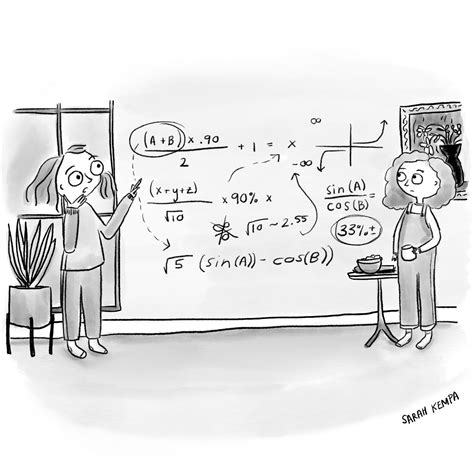 (A+B) x .90 / 2 + 1 = x
∞
-∞
(x+y+z) / √10 x 90% x
√10 ~ 2.55
sin(A) / cos(B) =
33%±
√5 (sin(A)) - cos(B))
SARAH KEMPA